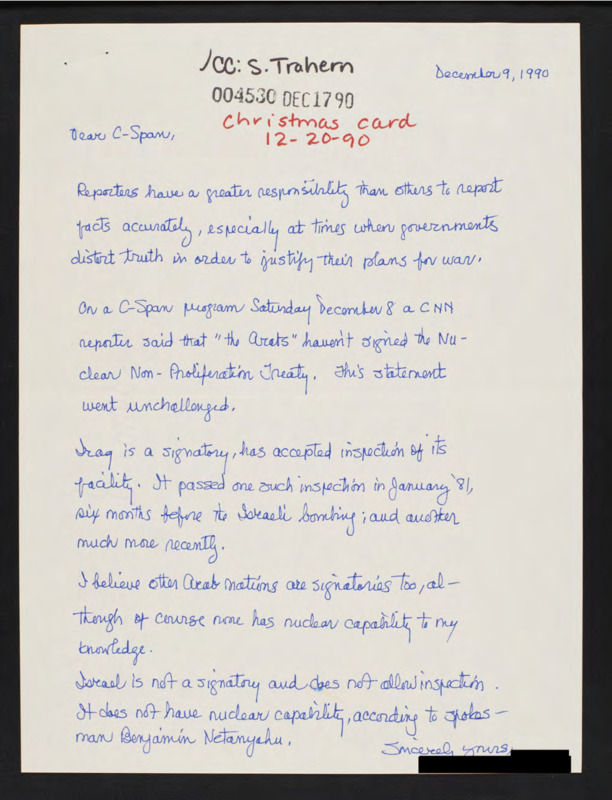 /CC: S. Trahern
December 9, 1990
004530 DEC 17 90
Christmas card
12-20-90
Dear C-Span,
Reporters have a greater responsibility than others to report
facts accurately, especially at times when governments
distort truth in order to justify their plans for war.
On a C-Span program Saturday December 8 a CNN
reporter said that "the Arabs" haven't signed the Nu-
clear Non-Proliferation Treaty. This statement
went unchallenged.
Iraq is a signatory, has accepted inspection of its
facility. It passed one such inspection in January '81,
six months before the Israeli bombing; and another
much more recently.
I believe other Arab nations are signatories too, al-
though of course none has nuclear capability to my
knowledge.
Israel is not a signatory and does not allow inspection.
It does not have nuclear capability, according to spokes-
man Benjamin Netanyahu.
Sincerely yours,